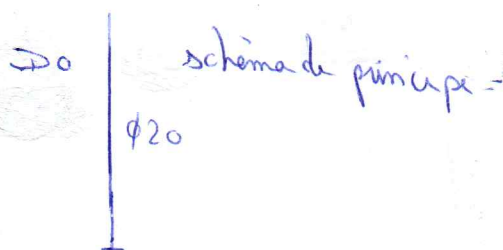 Do
schéma de principe -
φ20